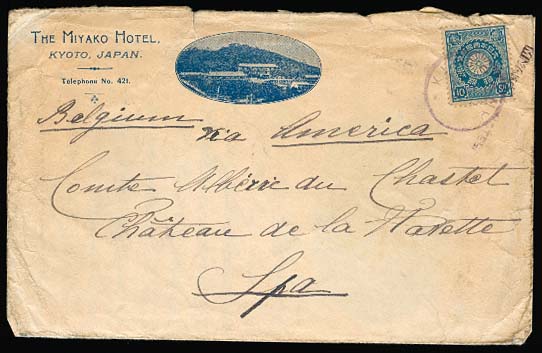 THE MIYAKO HOTEL,
KYOTO, JAPAN.
Telephone No. 421.
10
Belgium via America
Comte du Chastel
Château de la Havette
Spa